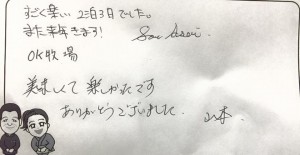 すごく楽しい2泊3日でした。
また来年きます!
OK牧場
美味しくて楽しかったです
ありがとうございました。山本.